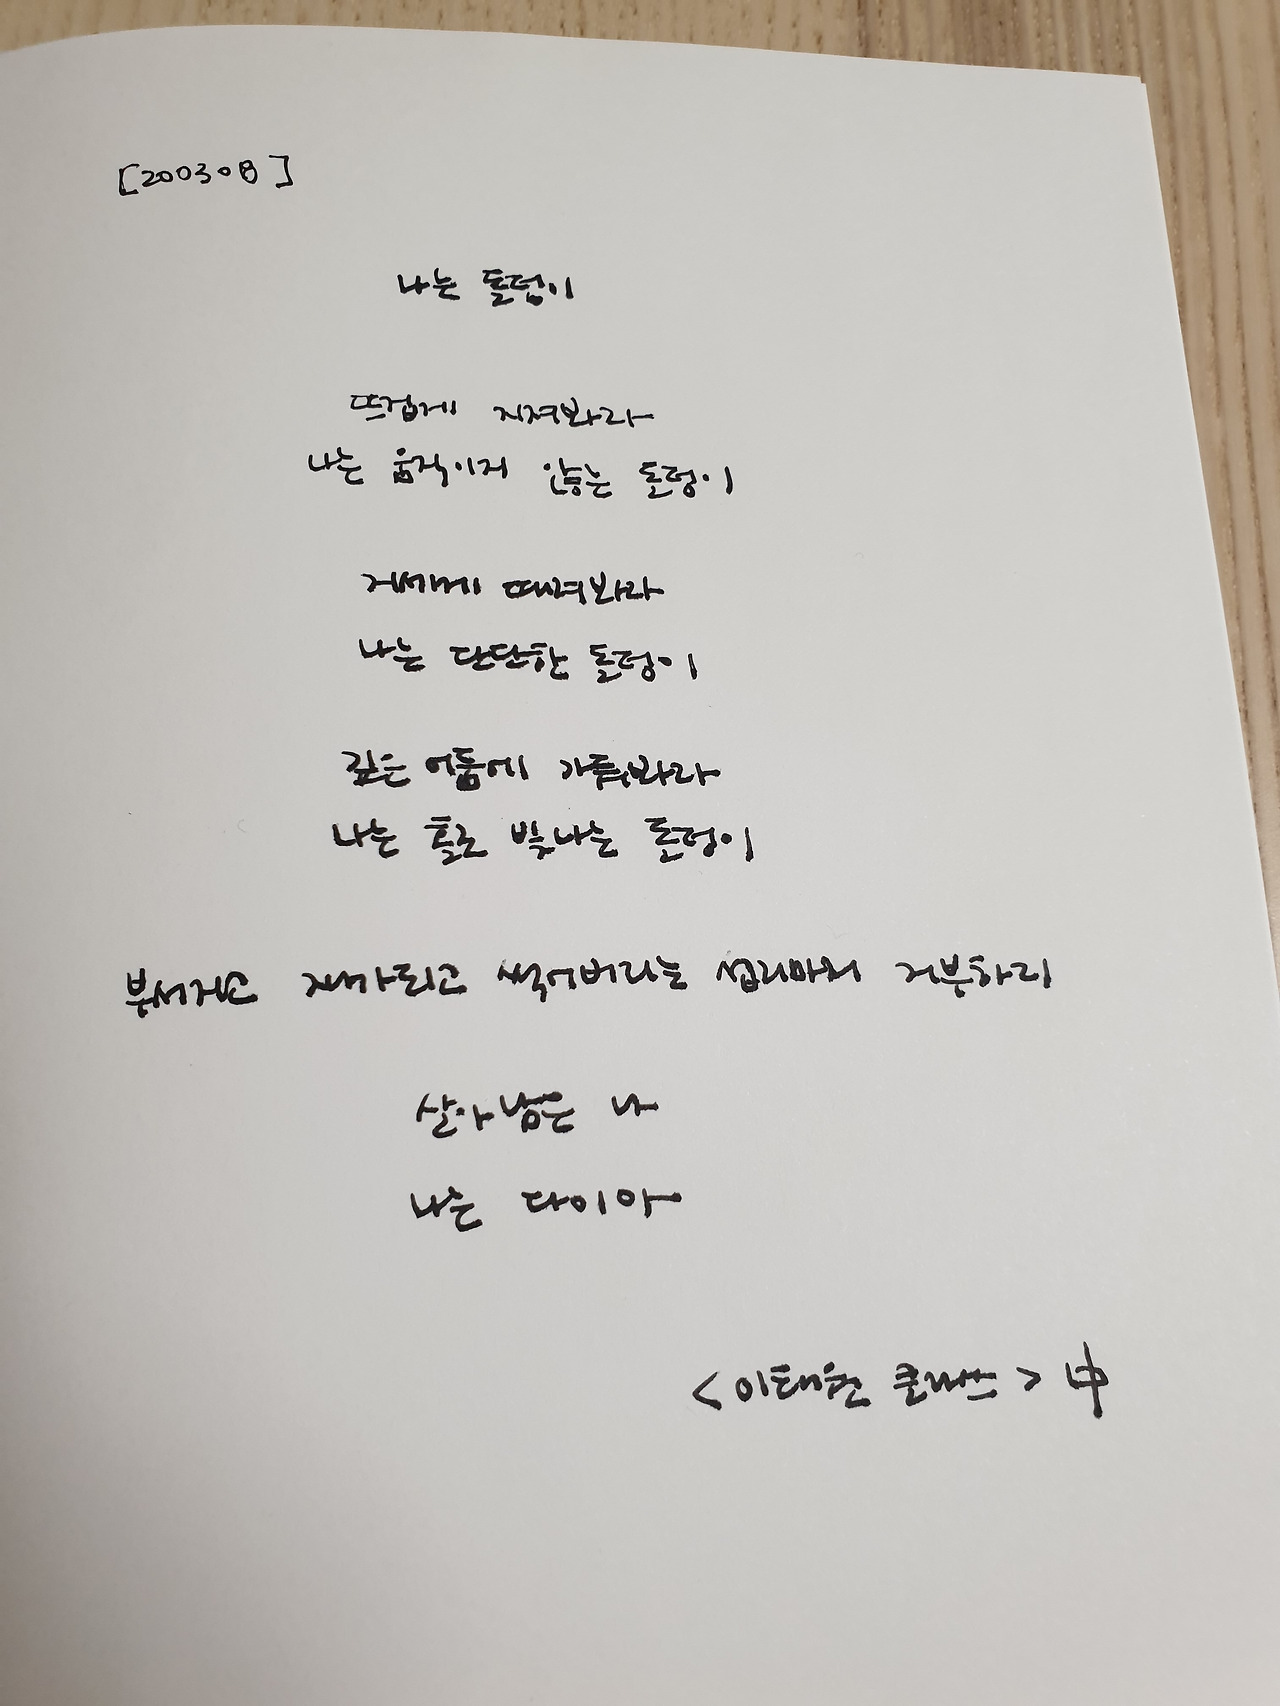 [200308]
나는 돌덩이
뜨겁게 지져봐라
나는 움직이지 않는 돌덩이
거세게 때려봐라
나는 단단한 돌덩이
깊은 어둠에 가둬봐라
나는 홀로 빛나는 돌덩이
부서지고 재가되고 썩어버리는 섭리마저 거부하리
살아남은 나
나는 다이아
<이태원 클라쓰> 中